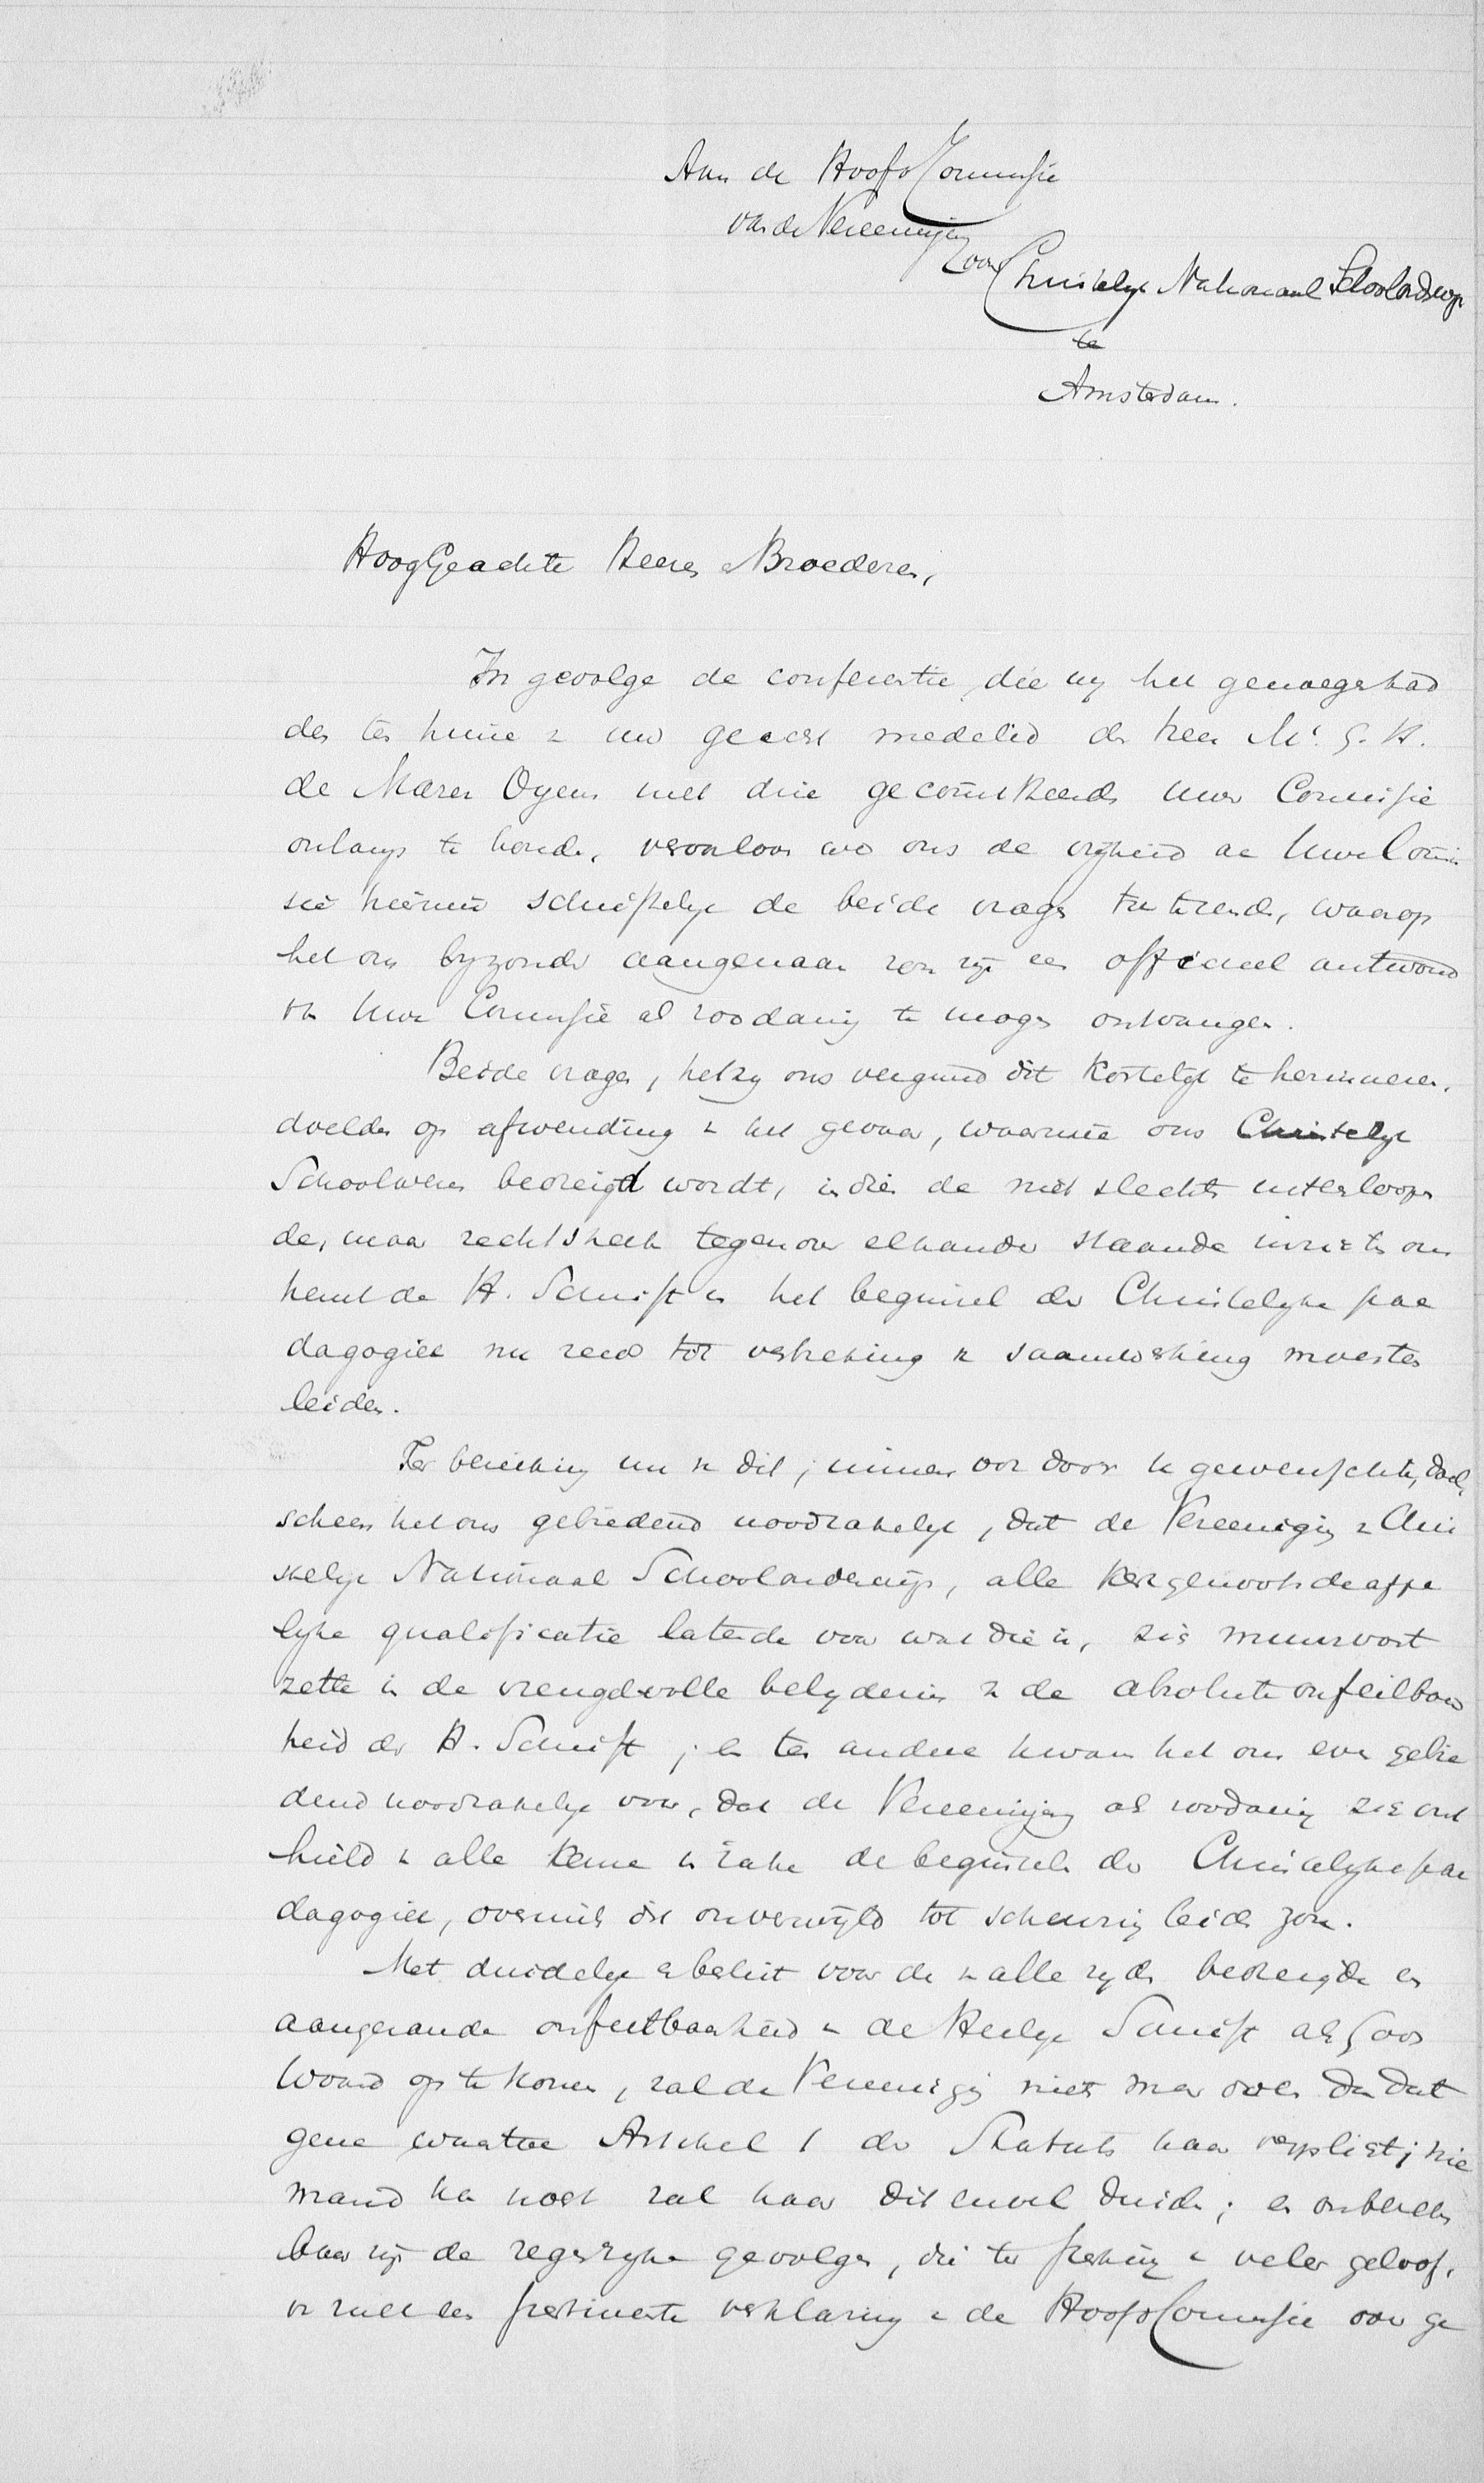 Aan de Hoofd Commissie
van de Vereeniging
voor Christelijk Nationaal Schoolonderwijs
te
Amsterdam.
HoogGeachte Heeren Broederen,
In gevolge de conferentie, die wij het genoegen had
den ten huize van uw geëerd medelid den heer Mr. G. H.
de Marez Oyens met drie gecommitteerden Uwer Commissie
onlangs te houden, veroorloven we ons de vrijheid aan Uwe Commis
sie hiermede schriftelijk de beide vragen te, waarop
het ons byzonder aangenaam zou zijn een officieel antwoord
van Uwe Commissie als zoodanig te mogen ontvangen.
Beide vragen, het zij ons vergund dit kortelijk te herinneren,
doelden op afwending van het gevaar, waarmee ons Christelijk
Schoolwezen bedreigd wordt, indien de niet slechts uiteenloopen
de, maar rechtstreeks tegenover elkander staande inzichten om
trent de H. Schrift en het beginsel der Christelijke pae
dagogiek nu reeds tot verbreking van saamwerking moesten
leiden.
Ter bereiking nu van dit, immers ook door U gewenschte, doel,
scheen het ons gebiedend noodzakelijk, dat de Vereeniging van Chris
telijk Nationaal Schoolonderwijs, alle kerkgenootschappe
lijke qualificatie latende voor wat die is, zich muurvast
zette in de vreugdevolle belijdenis van de absolute onfeilbaar
heid der H. Schrift; en ten andere kwam het ons even gebie
dend noodzakelijk voor, dat de Vereeniging als zoodanig zich ont
hield van alle keuze in zake de beginselen der Christelijke pae
dagogiek, overmits dit onverwijld tot scheuring leiden zou.
Met duidelijk en beslist voor de van alle zijden bedreigde en
aangerande onfeilbaarheid van de Heilige Schrift als Gods
Woord op te komen, zal de Vereeniging niets meer doen dan dat
gene waartoe Artikel 1 der Statuten haar verplicht; nie
mand kan noch zal haar dit euvel duiden; en onbereken
baar zijn de zegenrijke gevolgen, die ter sterking van veler geloof,
uit zulk een pertinente verklaring van de Hoofd Commissie voor ge